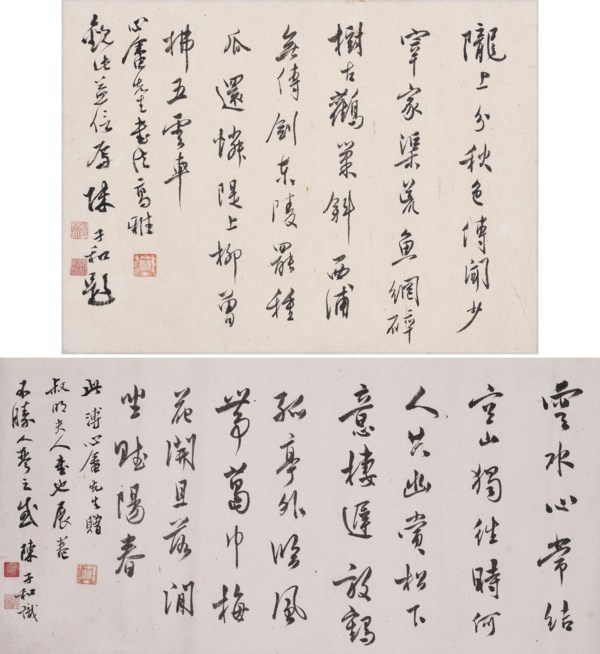 隴上分秋色傳聞少
宰家渠荒魚網碎
樹古鸛巢斜西浦
無傳劍東陵罷種
瓜還憐隄上柳曾
拂五雲車
心畬先生書法高雅
觀此益信陳子和題
雲水心常結
空山獨往時何
人共幽賞松下
意棲遲放鶴
孤亭外臨風
帶葛巾梅
花開且落閒
坐賦陽春
此溥心畬先生贈
叔明夫人書也展卷
不勝人琴之感陳子和識